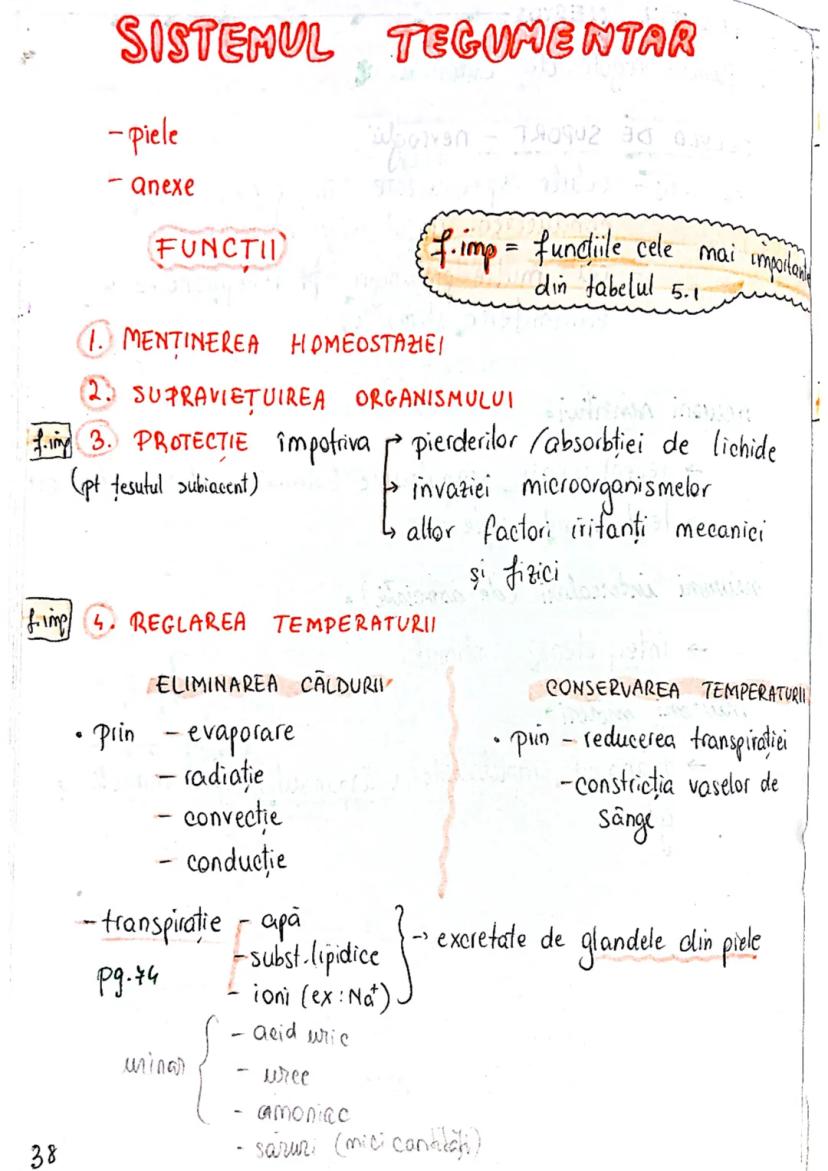 SISTEMUL TEGUMENTAR
- piele
- anexe
FUNCȚII
f.imp = funcțiile cele mai important
din tabelul 5.1
1. MENȚINEREA HOMEOSTAZIEI
2. SUPRAVIEȚUIREA ORGANISMULUI
f.imp 3. PROTECȚIE împotriva → pierderilor /absorbției de lichide
(pt țesutul subiacent) → invaziei microorganismelor
→ altor factori iritanți mecanici
și fizici
f.imp 4. REGLAREA TEMPERATURII
ELIMINAREA CĂLDURII
• prin - evaporare
- radiație
- convecție
- conducție
CONSERVAREA TEMPERATURII
• prin - reducerea transpirației
- constricția vaselor de
sânge
- transpirație - apă
pg.74 - subst.lipidice
- ioni (ex: Na⁺)
→ excretate de glandele din piele
urinar - acid uric
- uree
- amoniac
- săruri (mici cantități)
38